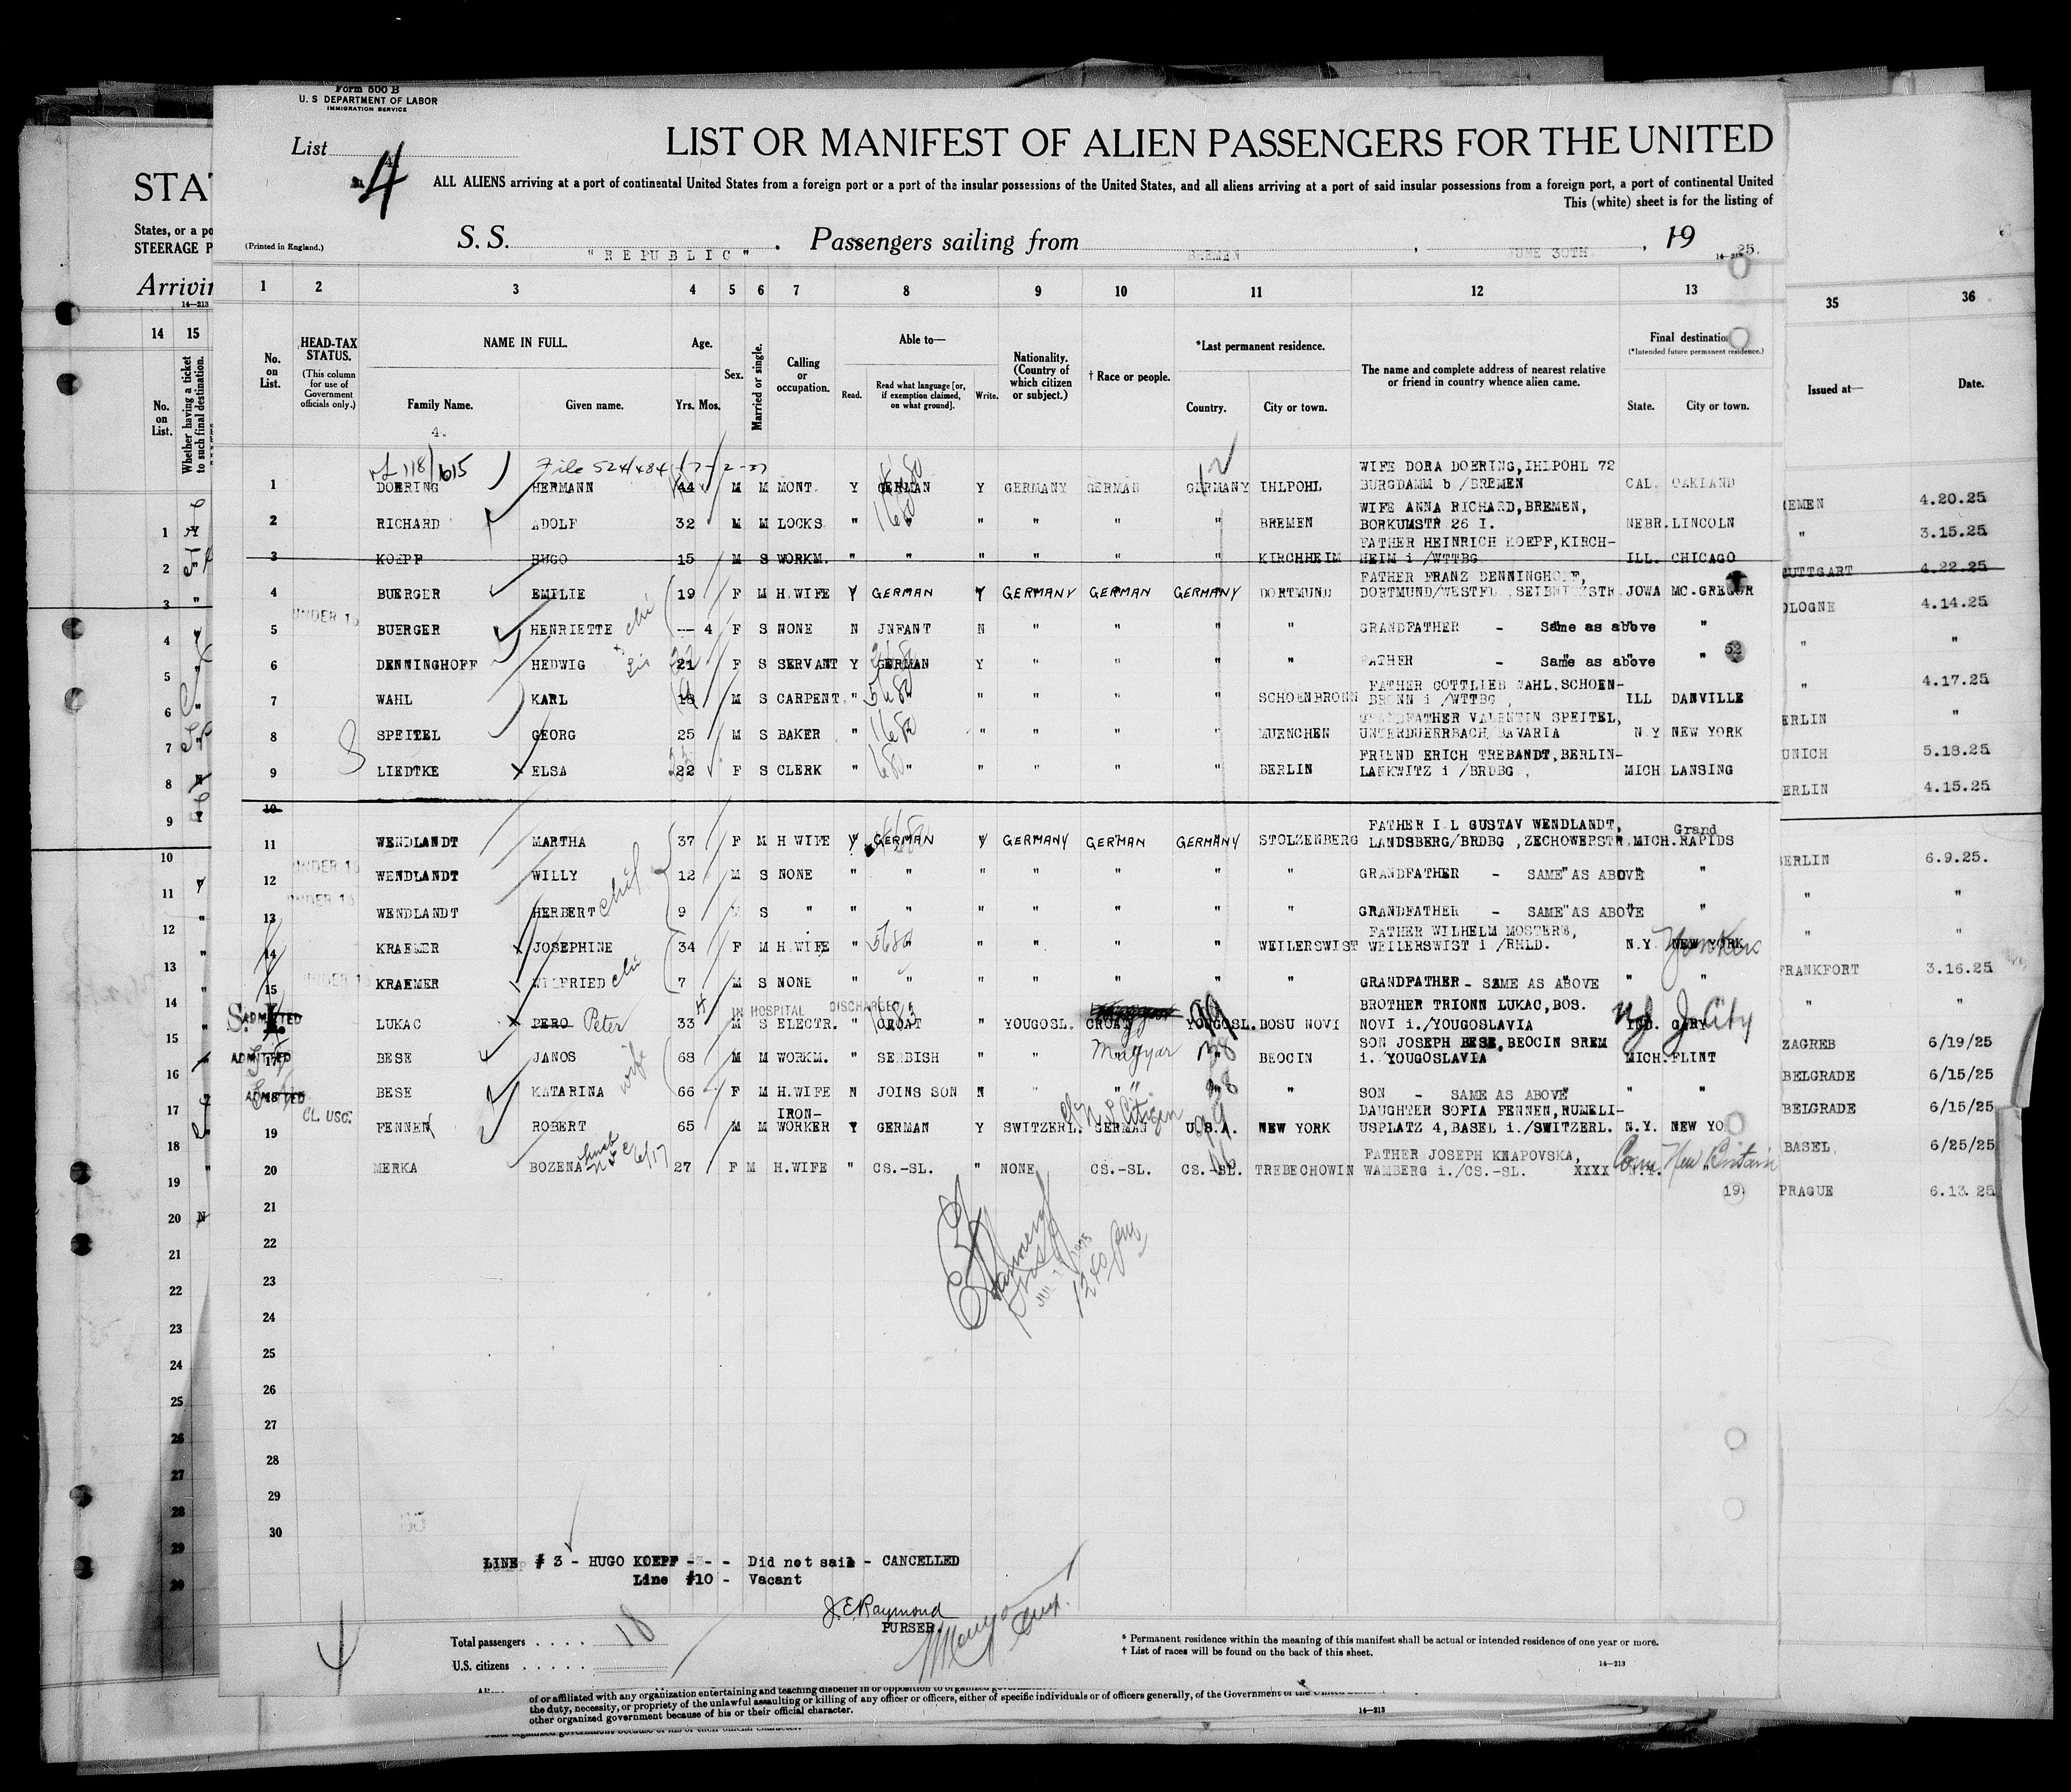 Form 500 B
U. S DEPARTMENT OF LABOR
IMMIGRATION SERVICE
List 4
4
LIST OR MANIFEST OF ALIEN PASSENGERS FOR THE UNITED
ALL ALIENS arriving at a port of continental United States from a foreign port or a port of the insular possessions of the United States, and all aliens arriving at a port of said insular possessions from a foreign port, a port of continental United
This (white) sheet is for the listing of
(Printed in England.)
S. S. "REPUBLIC" . Passengers sailing from BREMEN , JUNE 30TH , 19 25.
STA
States, or a po
STEERAGE P
Arrivin
14—213
1 2 3 4 5 6 7 8 9 10 11 12 13
14 15
35 36
No. on List.
HEAD-TAX STATUS.
(This column for use of Government officials only.)
NAME IN FULL.
Family Name.
Given name.
Age.
Yrs. Mos.
Sex.
Married or single.
Calling or occupation.
Able to—
Read.
Read what language [or, if exemption claimed, on what ground].
Write.
Nationality. (Country of which citizen or subject.)
† Race or people.
*Last permanent residence.
Country.
City or town.
The name and complete address of nearest relative or friend in country whence alien came.
Final destination
(*Intended future permanent residence.)
State.
City or town.
No. on List.
Whether having a ticket to such final destination.
Issued at—
Date.
4.
118/615 File 524/484
WIFE DORA DOERING, IHLPOHL 72
1 DOERING HERMANN 44 M M MONT. Y GERMAN Y GERMANY GERMAN GERMANY IHLPOHL BURGDAMM b /BREMEN CAL. OAKLAND
WIFE ANNA RICHARD, BREMEN,
2 RICHARD ADOLF 32 M M LOCKS " " " " " " BREMEN BORKUMSTR 26 I. NEBR. LINCOLN
FATHER HEINRICH KOEPF, KIRCH-
3 KOEPP HUGO 15 M S WORKM. " " " " " " KIRCHHEIM HEIM i /WTTBG ILL. CHICAGO
FATHER FRANZ DENNINGHOFF,
4 BUERGER EMILIE 19 F M H.WIFE Y GERMAN Y GERMANY GERMAN GERMANY DORTMUND DORTMUND/WESTF JOWA MC.GREGOR
UNDER 16
5 BUERGER HENRIETTE --- 4 F S NONE N JNFANT N " " " " GRANDFATHER - Same as above "
6 DENNINGHOFF HEDWIG 21 F S SERVANT Y GERMAN Y " " " " FATHER - Same as above "
FATHER GOTTLIEB WAHL, SCHOEN-
7 WAHL KARL 18 M S CARPENT. " " " " " " SCHOENBRONN BRONN i /WTTBG , ILL DANVILLE
GRANDFATHER VALENTIN SPEITEL,
8 SPEITEL GEORG 25 M S BAKER " " " " " " MUENCHEN UNTERDUERRBACH BAVARIA N.Y NEW YORK
FRIEND ERICH TREBANDT, BERLIN-
9 LIEDTKE ELSA 22 F S CLERK " " " " " " BERLIN LANKWITZ i /BRDBG , MICH LANSING
10
FATHER I.L GUSTAV WENDLANDT, Grand
11 WENDLANDT MARTHA 37 F M H.WIFE Y GERMAN Y GERMANY GERMAN GERMANY STOLZENBERG LANDSBERG/BRDBG , ZECHOWERSTR. MICH. RAPIDS
UNDER 16
12 WENDLANDT WILLY 12 M S NONE " " " " " " " GRANDFATHER - SAME AS ABOVE "
UNDER 16
13 WENDLANDT HERBERT 9 M S " " " " " " " " GRANDFATHER - SAME AS ABOVE "
FATHER WILHELM MOSTERS,
14 KRAEMER JOSEPHINE 34 F M H.WIFE " " " " " " WEILERSWIST WEILERSWIST i /RHLD. N.Y. NEW YORK Yonkers
UNDER 16
15 KRAEMER WILFRIED 7 M S NONE " " " " " " " GRANDFATHER - SAME AS ABOVE " "
IN HOSPITAL DISCHARGED
BROTHER TRIONN LUKAC, BOS.
ADMITTED LUKAC PERO Peter 33 M S ELECTR. " CROAT " YOUGOSL. CROAT YOUGOSL. BOSU NOVI NOVI i./YOUGOSLAVIA IND. GARY NJ J. City
SON JOSEPH BESE, BEOCIN SREM
ADMITTED 17 BESE JANOS 68 M M WORKM. " SERBISH " " Magyar " BEOCIN i. YOUGOSLAVIA MICH. FLINT
ADMITTED 18 BESE KATARINA wife 66 F M H.WIFE N JOINS SON N " " " " SON - SAME AS ABOVE " "
CL. USC.
IRON- DAUGHTER SOFIA FENNEN, RUMELI-
19 FENNEN ROBERT 65 M M WORKER Y GERMAN Y SWITZERL. GERMAN U.S.A. NEW YORK USPLATZ 4, BASEL i./SWITZERL. N.Y. NEW YO
Citizen
FATHER JOSEPH KNAPOVSKA,
20 MERKA BOZENA 27 F M H.WIFE " CS.-SL. " NONE CS.-SL. CS.-SL. TREBECHOWIN WAMBERG i./CS.-SL. XXXX N.Y. Conn New Britain
19
21
22
23
24
25
26
27
28
29
30
1240 pm
EMEN 4.20.25
" 3.15.25
TUTTGART 4.22.25
OLOGNE 4.14.25
" "
" 4.17.25
ERLIN "
UNICH 5.18.25
ERLIN 4.15.25
BERLIN 6.9.25.
" "
" "
FRANKFORT 3.16.25
" "
ZAGREB 6/19/25
BELGRADE 6/15/25
BELGRADE 6/15/25
BASEL 6/25/25
PRAGUE 6.13.25
LINE # 3 - HUGO KOEPF - - - Did not sail - CANCELLED
Line #10 - Vacant
J.E. Raymond
PURSER.
Total passengers . . . . 18
U.S. citizens . . . . .
* Permanent residence within the meaning of this manifest shall be actual or intended residence of one year or more.
† List of races will be found on the back of this sheet.
14—213
of or affiliated with any organization entertaining and teaching disbelief in or opposition to organized
the duty, necessity, or propriety of the unlawful assaulting or killing of any officer or officers, either of specific individuals or of officers generally, of the Government of the United
other organized government because of his or their official character.
14—213